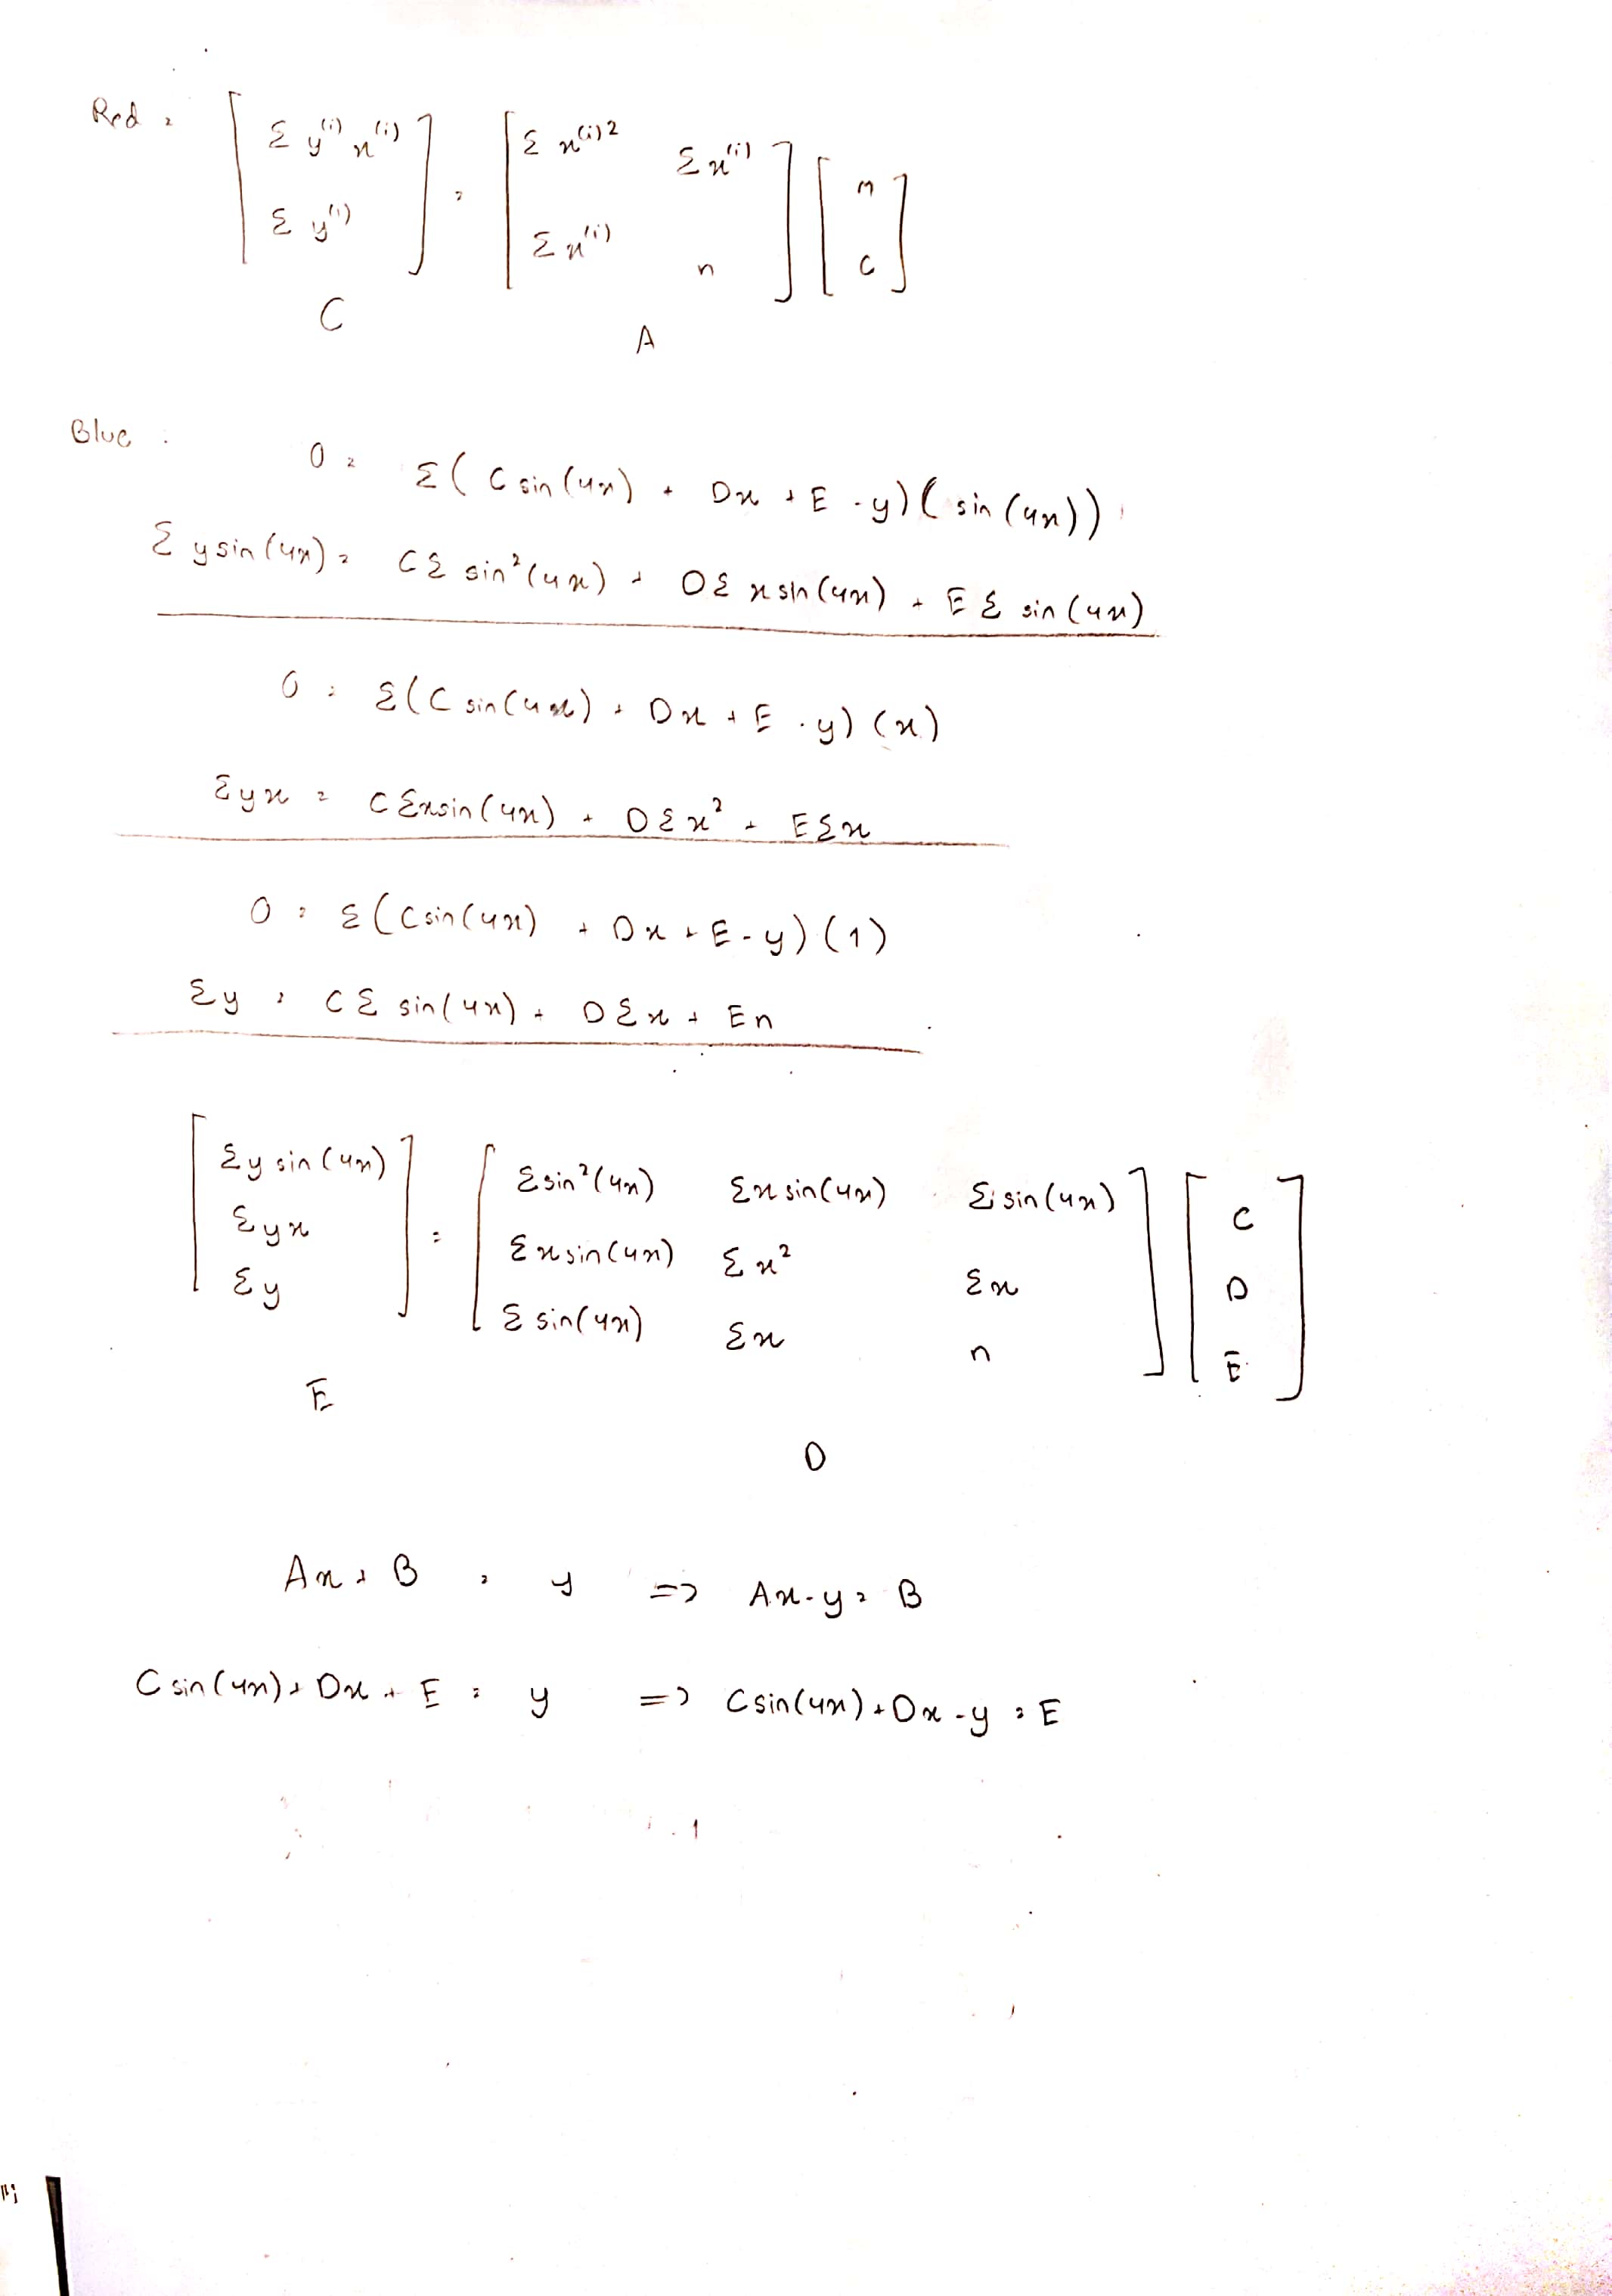 Red = [ Σ y⁽ⁱ⁾ x⁽ⁱ⁾ ] = [ Σ x⁽ⁱ⁾² Σ x⁽ⁱ⁾ ] [ m ]
[ Σ y⁽ⁱ⁾ ] [ Σ x⁽ⁱ⁾ n ] [ c ]
C A
Blue :
0 = Σ ( C sin (4x) + Dx + E - y) ( sin (4x))
Σ y sin (4x) = C Σ sin² (4x) + D Σ x sin (4x) + E Σ sin (4x)
0 = Σ ( C sin (4x) + Dx + E - y) (x)
Σ y x = C Σ x sin (4x) + D Σ x² + E Σ x
0 = Σ ( C sin (4x) + Dx + E - y) (1)
Σ y = C Σ sin (4x) + D Σ x + E n
[ Σ y sin (4x) ] = [ Σ sin² (4x) Σ x sin (4x) Σ sin (4x) ] [ C ]
[ Σ y x ] [ Σ x sin (4x) Σ x² Σ x ] [ D ]
[ Σ y ] [ Σ sin (4x) Σ x n ] [ E ]
E
D
Ax + B = y => Ax - y = B
C sin (4x) + Dx + E = y => C sin (4x) + Dx - y = E